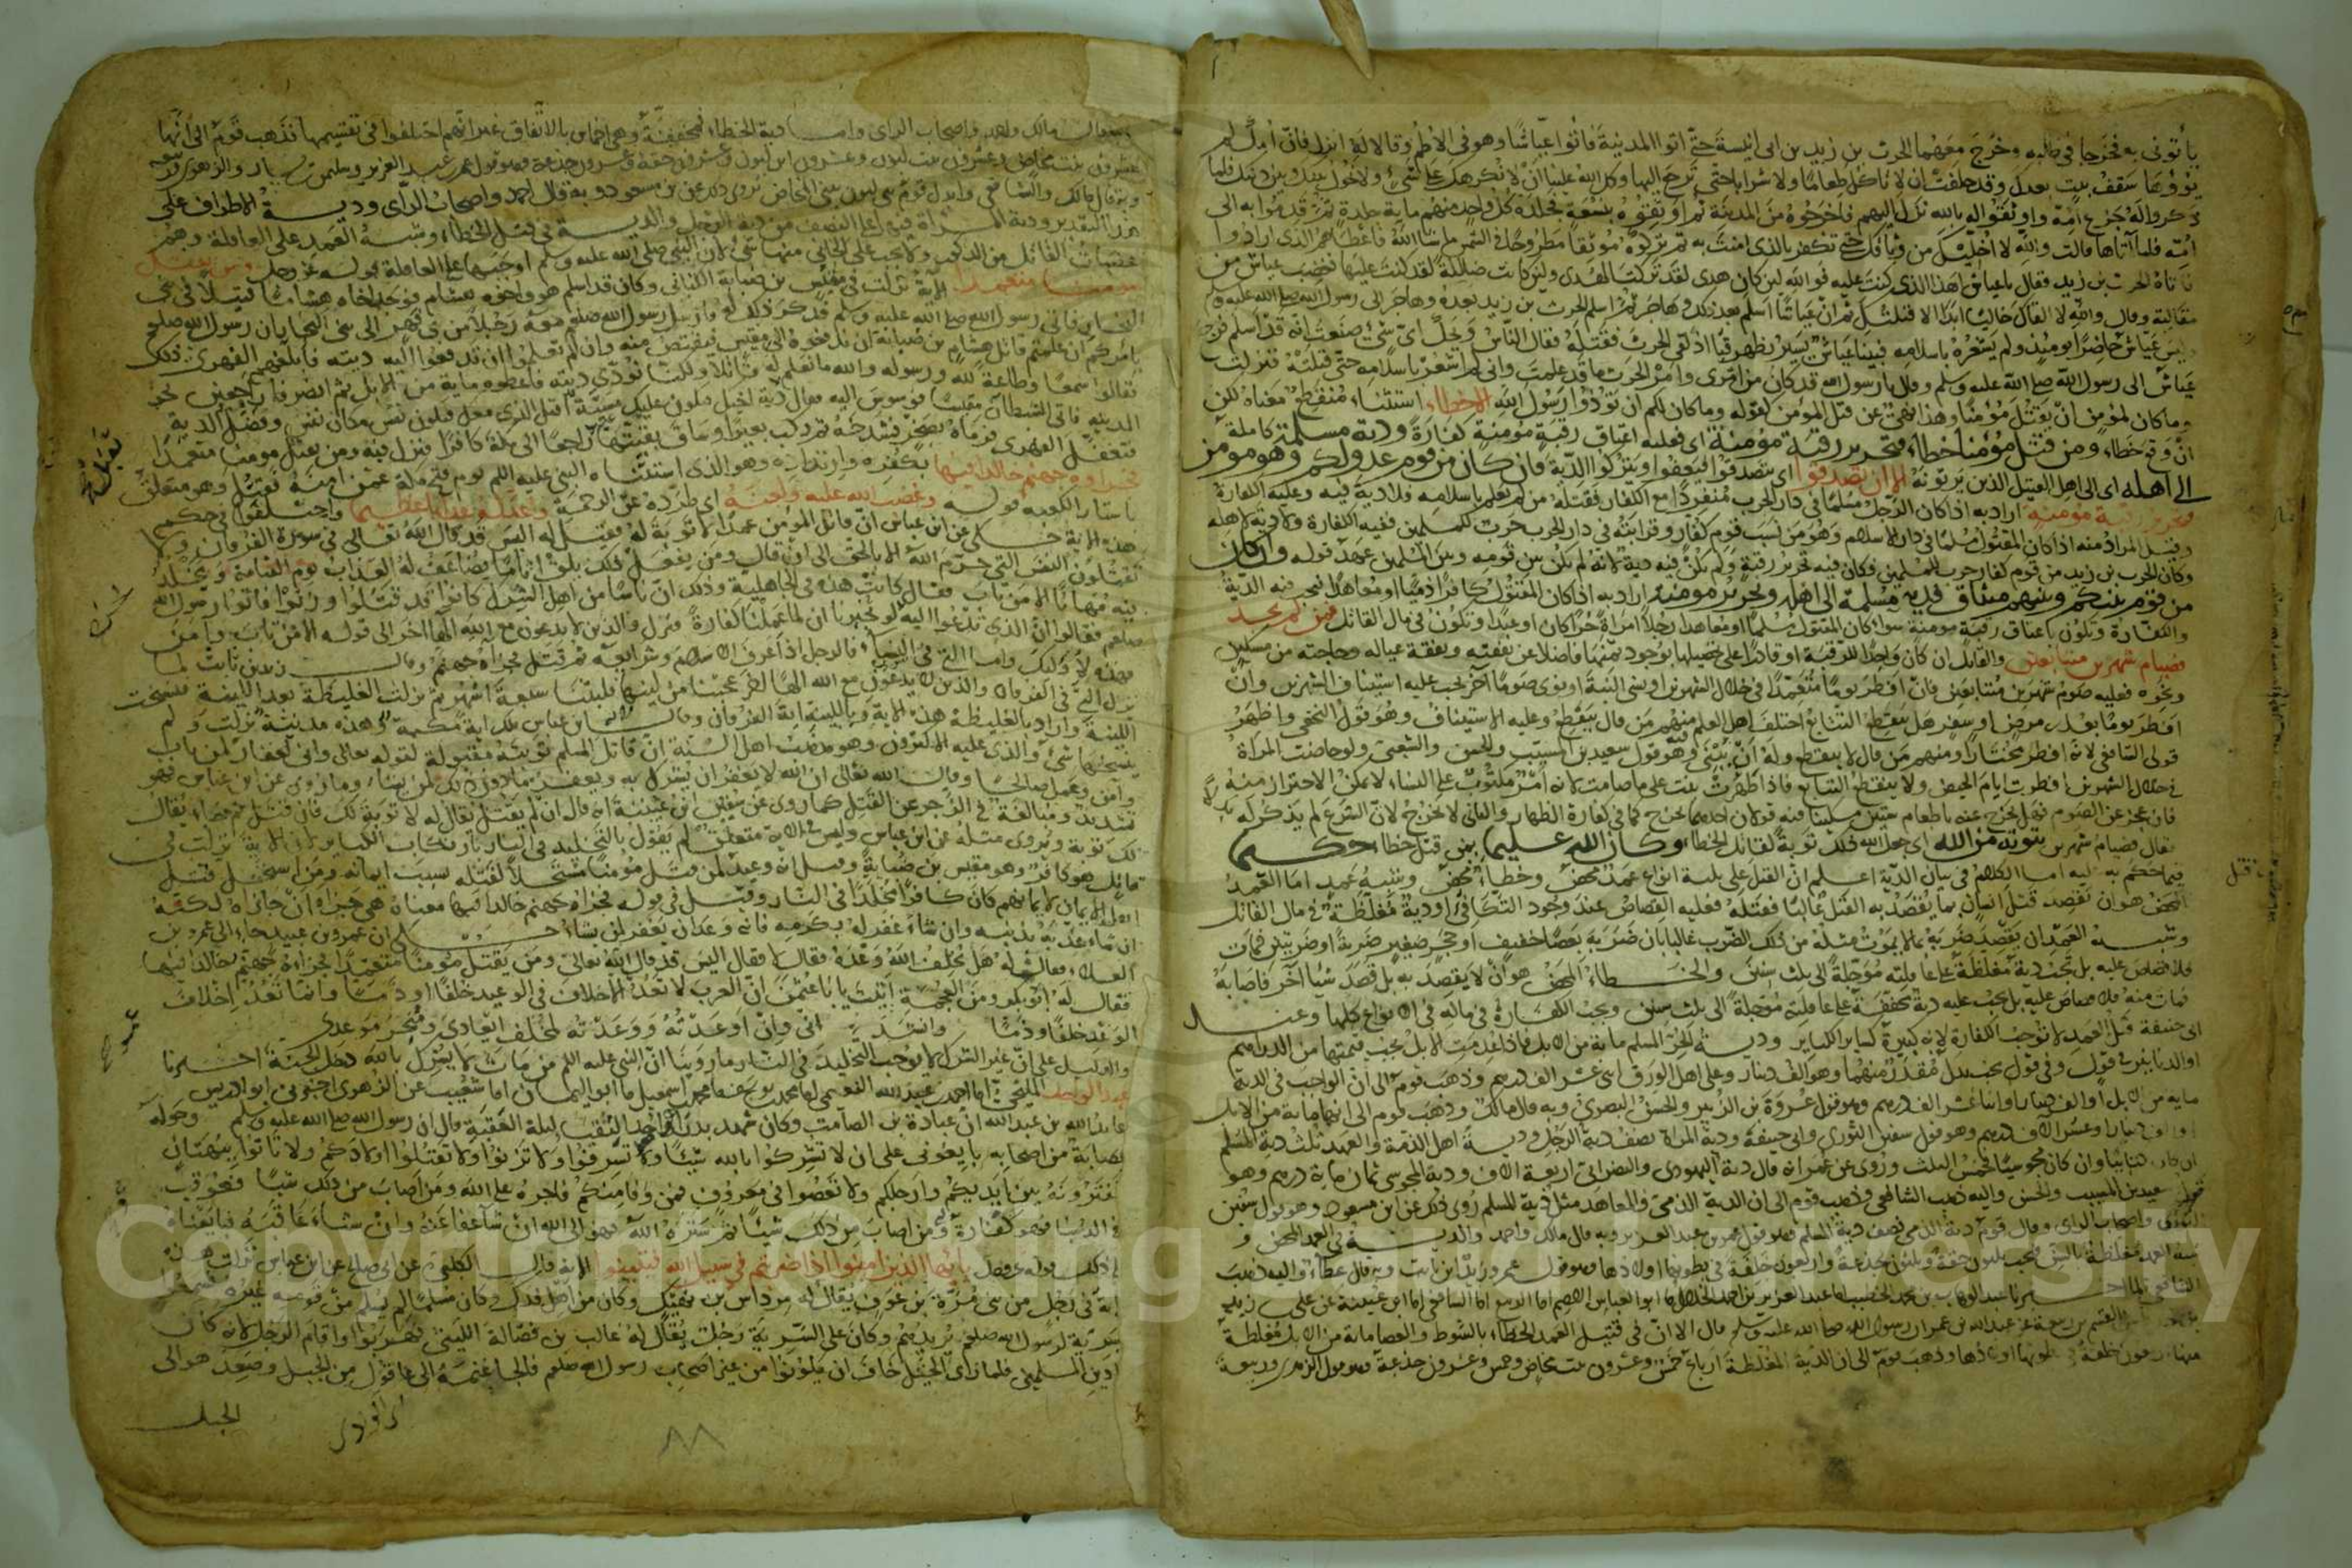 يأتونى به فخرجا فى طلبه وخرج معهما الحرث بن زيد بن ابى انيسة حتى اتوا المدينة فأتوا عياشا وهو فى الاطم وقالا له انزل فان أمك لم
يؤوها سقف بيت بعدك وقد حلفت ان لا تاكل طعاما ولا شرابا حتى ترجع اليها ولك الله علينا ان لا نكرهك على شئ ولا نحول بينك وبين دينك فلما
ذكروا له جزع امه واوثقوا له بالله نزل اليهم فاخرجوه من المدينة ثم اوثقوه بنسعة فجلده كل واحد منهم ماية جلدة ثم قدموا به الى
امه فلما أتاها قالت والله لا احلك من وثاقك حتى تكفر بالذى امنت به ثم تركوه موثقا مطروحا فى الشمس ما شا الله فاعطاهم الذى ارادوا
فاتاه الحرث بن زيد فقال ياعياش اهذا الذى كنت عليه فوالله لئن كان هدى لقد تركت الهدى ولئن كانت ضلالة لقد كنت عليها فغضب عياش من
مقالته وقال والله لا القاك خاليا ابدا الا قتلتك ثم ان عياشا اسلم بعد ذلك وهاجر ثم اسلم الحرث بن زيد بعده وهاجر الى رسول الله صلى الله عليه وسلم
وليس عياش حاضرا يوميذ ولم يشعر باسلامه فبينا عياش يسير بظهر قبا اذ لقى الحرث فقتله فقال الناس ويحك اى شئ صنعت انه قد اسلم فرجع
عياش الى رسول الله صلى الله عليه وسلم وقال يا رسول الله قد كان من امرى وامر الحرث ما قد علمت وانى لم اشعر باسلامه حتى قتلته فنزلت
وما كان لمؤمن ان يقتل مؤمنا وهذا نهى عن قتل المؤمن لقوله وما كان لكم ان تؤذوا رسول الله الا خطاء استثناء منقطع معناه لكن
ان وقع خطاء ومن قتل مؤمنا خطاء فتحرير رقبة مؤمنة اى فعليه اعتاق رقبة مؤمنة كفارة ودية مسلمة كاملة
الى اهله اى الى اهل القتيل الذين يرثونه الا ان يصدقوا اى يتصدقوا فيعفوا ويتركوا الدية فان كان من قوم عدو لكم وهو مومن
فتحرير رقبة مومنة اراد به اذا كان الرجل مسلما فى دار الحرب منفردا مع الكفار فقتله من لم يعلم باسلامه فلا دية فيه وعليه الكفارة
وقيل المراد منه اذا كان المقتول مسلما فى دار الاسلام وهو من نسب قوم كفار وقرابته فى دار الحرب حرب للمسلمين ففيه الكفارة ولا دية لاهله
وكان الحرث بن زيد من قوم كفار حرب للمسلمين فكان فيه تحرير رقبة ولم يكن فيه دية لانه لم يكن بين قومه وبين المسلمين عهد قوله وان كان
من قوم بينكم وبينهم ميثاق فدية مسلمة الى اهله وتحرير مومنة اراد به اذا كان المقتول كافرا ذميا او معاهدا فيجب فيه الدية
والكفارة وتكون باعتاق رقبة مومنة سوا كان المقتول مسلما او معاهدا رجلا امراة حرا كان او عبدا وتكون فى مال القاتل فمن لم يجد
فصيام شهرين متتابعين والقاتل ان كان واجدا للرقبة او قادرا على تحصيلها بوجود ثمنها فاضلا عن نفقته ونفقة عياله وحاجته من مسكن
ونحوه فعليه صوم شهرين متتابعين فان افطر يوما متعمدا فى خلال الشهرين او نسى النية او نوى صوما آخر يجب عليه استيناف الشهرين وان
افطر يوما بعذر مرض او سفر هل ينقطع التتابع اختلف اهل العلم فيه منهم من قال ينقطع وعليه الاستيناف وهو قول النخعى واظهر
قولى الشافعى لانه افطر مختارا ومنهم من قال لا ينقطع وله ان يبنى وهو قول سعيد بن المسيب والحسن والشعبى ولو حاضت المراة
فى خلال الشهرين افطرت ايام الحيض ولا ينقطع التتابع فاذا طهرت بنت على ما صامت لانه امر مكتوب على النساء لا يمكن الاحتراز منه
فان عجز عن الصوم فهل يخرج عنه باطعام ستين مسكينا فيه قولان احدهما يخرج كما فى كفارة الظهار والثانى لا يخرج لان الشرع لم يذكر له
فقال فصيام شهرين توبة من الله اى جعل الله ذلك توبة لقاتل الخطاء وكان الله عليما بمن قتل خطاء حكيما
فيما حكم به عليه اما الكلام فى بيان الدية اعلم ان القتل على ثلثة انواع عمد محض وخطاء محض وشبه عمد اما العمد
المحض هو ان يقصد قتل انسان بما يقصد به القتل غالبا فقتله ففيه القصاص عند وجود التكافؤ او دية مغلظة فى مال القاتل
وشبه العمد ان يقصد ضربه بما لا يموت مثله من ذلك الضرب غالبا بان ضربه بعصا خفيف او حجر صغير ضربة او ضربتين فمات
فلا قصاص عليه بل تجب دية مغلظة على عاقلته مؤجلة الى ثلث سنين والخطاء المحض هو ان لا يقصد به بل قصد شيا آخر فاصابه
فمات منه فلا قصاص عليه بل تجب عليه دية مخففة على عاقلته مؤجلة الى ثلث سنين ويجب الكفارة فى ماله فى الانواع كلها وعند
ابى حنيفة قتل العمد لا توجب الكفارة لانه كبيرة كساير الكباير ودية الحر المسلم ماية من الابل فاذا عدمت الابل يجب قيمتها من الدراهم
او الدنانير فى قول وفى قول يجب بدل مقدر منهما وهو الف دينار وعلى اهل الورق اثنى عشر الف درهم وذهب قوم الى ان الواجب فى الدية
ماية من الابل او الف دينار او اثنا عشر الف درهم وهو قول عروة بن الزبير والحسن البصرى وبه قال مالك وذهب قوم الى انها ماية من الابل
او الف دينار او عشرة الاف درهم وهو قول سفين الثورى وابى حنيفة ودية المراة نصف دية الرجل ودية اهل الذمة والعهد ثلث دية المسلم
ان كان كتابيا وان كان مجوسيا فخمس الثلث وروى عن عمر انه قال دية اليهودى والنصرانى اربعة الاف ودية المجوسى ثمان ماية درهم وهو
قول سعيد بن المسيب والحسن واليه ذهب الشافعى وذهب قوم الى ان الدية الذمى والمعاهد مثل دية المسلم روى ذلك عن ابن مسعود وهو قول سفين
الثورى واصحاب الراى وقال قوم دية الذمى نصف دية المسلم وهو قول عمر بن عبد العزيز وبه قال مالك واحمد والدية فى العمد المحض و
شبه العمد مغلظة بالسن فيجب ثلثون حقة وثلثون جذعة واربعون خلفة فى بطونها اولادها وهو قول عمر وزيد ابن ثابت وبه قال عطاء واليه ذهب
الشافعى لما اخبرنا عبد الوهاب بن محمد الخطيب اما عبد العزيز بن احمد الخلال ما ابو العباس الاصم اما الربيع اما الشافعى اما ابن عيينة عن على بن زيد
القسم بن ربيعة عن عبد الله بن عمر ان رسول الله صلى الله عليه وسلم قال الا ان فى قتيل العمد الخطاء بالسوط والعصا ماية من الابل مغلظة
منها اربعون خلفة فى بطونها اولادها وذهب قوم الى ان الدية المغلظة ارباع خمس وعشرون بنت مخاض وخمس وعشرون جذعة وهو قول الزهرى وربيعة
وبه قال مالك واحمد واصحاب الراى واما دية الخطاء فمخففة وهى اخماس بالاتفاق غير انهم اختلفوا فى تقسيمها فذهب قوم الى انها
عشرون بنت مخاض وعشرون بنت لبون وعشرون ابن لبون وعشرون حقة وعشرون جذعة وهو قول عمر بن عبد العزيز وسليمن بن يسار والزهرى وربيعة
وبه قال مالك والشافعى وابدل قوم بنى لبون ببنى المخاض يروى ذلك عن بن مسعود وبه قال احمد واصحاب الراى ودية الاطراف على
هذا التقدير ودية المراة فيها على النصف من دية الرجل والدية فى قتل الخطاء وشبه العمد على العاقلة وهم
عصبات القاتل من الذكور ولا يجب على الجانى منها شئ لان النبى صلى الله عليه وسلم اوجبها على العاقلة قوله عز وجل ومن يقتل
مومنا متعمدا الاية نزلت فى مقيس بن ضبابة الكنانى وكان قد اسلم هو واخوه هشام فوجد اخاه هشاما قتيلا فى بنى
النجار فاتى رسول الله صلى الله عليه وسلم فذكر ذلك له فارسل رسول الله صلعم معه رجلا من بنى فهر الى بنى النجار بان رسول الله صلعم
يامركم ان علمتم قاتل هشام بن ضبابة ان تدفعوه الى مقيس فيقتص منه وان لم تعلموا ان تدفعوا اليه ديته فابلغهم الفهرى ذلك
فقالوا سمعا وطاعة لله ورسوله والله ما نعلم له قاتلا ولكنا نؤدى ديته فاعطوه ماية من الابل ثم انصرفا راجعين نحو
المدينة فاتى الشيطان مقيسا فوسوس اليه فقال دية اخيك فتكون عليك مسبة اقتل الذى معك فتكون نفس مكان نفس وفضل الدية
فتغفل الفهرى فرماه بصخر فشدخه ثم ركب بعيرا وساق بقيتها راجعا الى مكة كافرا فنزل فيه ومن يقتل مومنا متعمدا
فجزاوه جهنم خالدا فيها بكفره وارتداده وهو الذى استثناه النبى عليه السلم يوم فتح مكة عمن امنه فقتل وهو متعلق
باستار الكعبة قوله وغضب الله عليه ولعنه اى طرده عن الرحمة واعد له عذابا عظيما واختلفوا فى حكم
هذه الاية حكى عن ابن عباس ان قاتل المؤمن عمدا لا توبة له فقيل له اليس قد قال الله تعالى فى سورة الفرقان ولا
يقتلون النفس التى حرم الله الا بالحق الى ان قال ومن يفعل ذلك يلق اثاما يضاعف له العذاب يوم القيامة ويخلد
فيه مهانا الا من تاب فقال كانت هذه فى الجاهلية وذلك ان ناسا من اهل الشرك كانوا قد قتلوا وزنوا فاتوا رسول الله
صلعم فقالوا ان الذى تدعوا اليه لو تخبرنا ان لما عملنا كفارة فنزل والذين لا يدعون مع الله الها اخر الى قوله الا من تاب وآمن
فهذه لاولئك واما التى فى النساء فالرجل اذا عرف الاسلام وشرايعه ثم قتل فجزاه جهنم وقال زيد بن ثابت لما
نزل التى فى الفرقان والذين لا يدعون مع الله الها اخر عجبنا من لينها فلبثنا سبعة اشهر ثم نزلت الغليظة بعد اللينة فنسخت
اللينة واراد بالغليظة هذه الاية وباللينة اية الفرقان وقال ابن عباس تلك اية مكية وهذه مدنية نزلت ولم
ينسخها شئ والذى عليه الاكثرون وهو مذهب اهل السنة ان قاتل المسلم توبته مقبولة لقوله تعالى وانى لغفار لمن تاب
وآمن وعمل صالحا وقال الله تعالى ان الله لا يغفر ان يشرك به ويغفر ما دون ذلك لمن يشاء وما روى عن ابن عباس فهو
تشديد ومبالغة فى الزجر عن القتل كما روى عن سفين ابن عيينة انه قال ان لم يقتل يقال له لا توبة لك فان قتل ثم جاء يقال
لك توبة ويروى مثله عن ابن عباس وليس فى الاية متعلق لم يقول بالتخليد فى النار بارتكاب الكباير لان الاية نزلت فى
قاتل هو كافر وهو مقيس بن ضبابة وقيل انه وعيد لمن قتل مؤمنا مستحلا لقتله بسبب ايمانه ومن استحل قتل
اهل الايمان لايمانهم كان كافرا مخلدا فى النار وقيل فى قوله فجزاه جهنم خالدا فيها معناه هى جزاوه ان جازاه لكنه
ان شاء عذبه بذنبه وان شاء غفر له بكرمه فانه وعد ان يغفر لمن يشاء حكى ان عمرو بن عبيد جاء الى عمرو بن
العلاء فقال له هل يخلف الله وعده فقال لا فقال اليس قد قال الله تعالى ومن يقتل مؤمنا متعمدا فجزاءه جهنم خالدا فيها
فقال له ابو عمرو ومن العجمة اتيت يا با عثمن ان العرب لا تعد الاخلاف فى الوعيد خلفا او ذما وانما تعد اخلاف
الوعد خلفا وذما وانشد انى وان اوعدته ووعدته لمخلف ايعادى ومنجز موعدى
والدليل على ان غير الشرك لا يوجب التخليد فى النار ما روينا ان النبى عليه السلم من مات لا يشرك بالله دخل الجنة اخبرنا
عبد الواحد المليحى اما احمد بن عبد الله النعيمى اما محمد بن يوسف ما محمد بن اسمعيل ما ابو اليمان اما شعيب عن الزهرى اخبرنى ابو ادريس
عايذ الله بن عبد الله ان عبادة بن الصامت وكان شهد بدرا واحد النقباء ليلة العقبة قال ان رسول الله صلى الله عليه وسلم وحوله
عصابة من اصحابه بايعونى على ان لا تشركوا بالله شيئا ولا تسرقوا ولا تزنوا ولا تقتلوا اولادكم ولا تاتوا ببهتان
تفترونه بين ايديكم وارجلكم ولا تعصوا فى معروف فمن وفا منكم فاجره على الله ومن اصاب من ذلك شيئا فعوقب
فى الدنيا فهو كفارة له ومن اصاب من ذلك شيئا ثم ستره الله فهو الى الله ان شا عفا عنه وان شاء عاقبه فبايعناه
على ذلك قوله عز وجل يايها الذين امنوا اذا ضربتم فى سبيل الله فتبينوا الاية قال الكلبى عن ابى صالح عن ابن عباس نزلت هذه
الاية فى رجل من بنى مرة بن عوف يقال له مرداس بن نهيك وكان من اهل فدك وكان مسلما لم يسلم من قومه غيره فسمعوا
بسرية لرسول الله صلعم تريدهم وكان على السرية رجل يقال له غالب بن فضالة الليثى فهربوا واقام الرجل لانه كان
على دين المسلمين فلما راى الخيل خاف ان يكونوا من غير اصحاب رسول الله صلعم فالجا غنمه الى عاقول من الجبل وصعد هو الى
الجبل
٨٨
Copyright © King Saud University